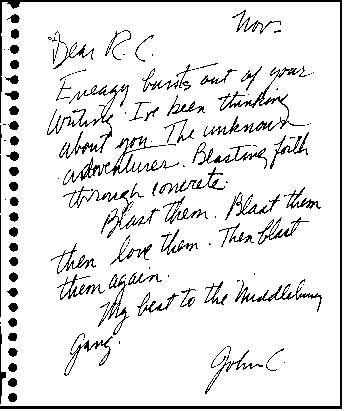 Nov.
Dear R.C.
Energy bursts out of your
writing. I've been thinking
about you. The unknown
adventurer. Blasting forth
through concrete.
Blast them. Blast them
then love them. Then blast
them again.
My best to the Middlebury
Gang.
John C.